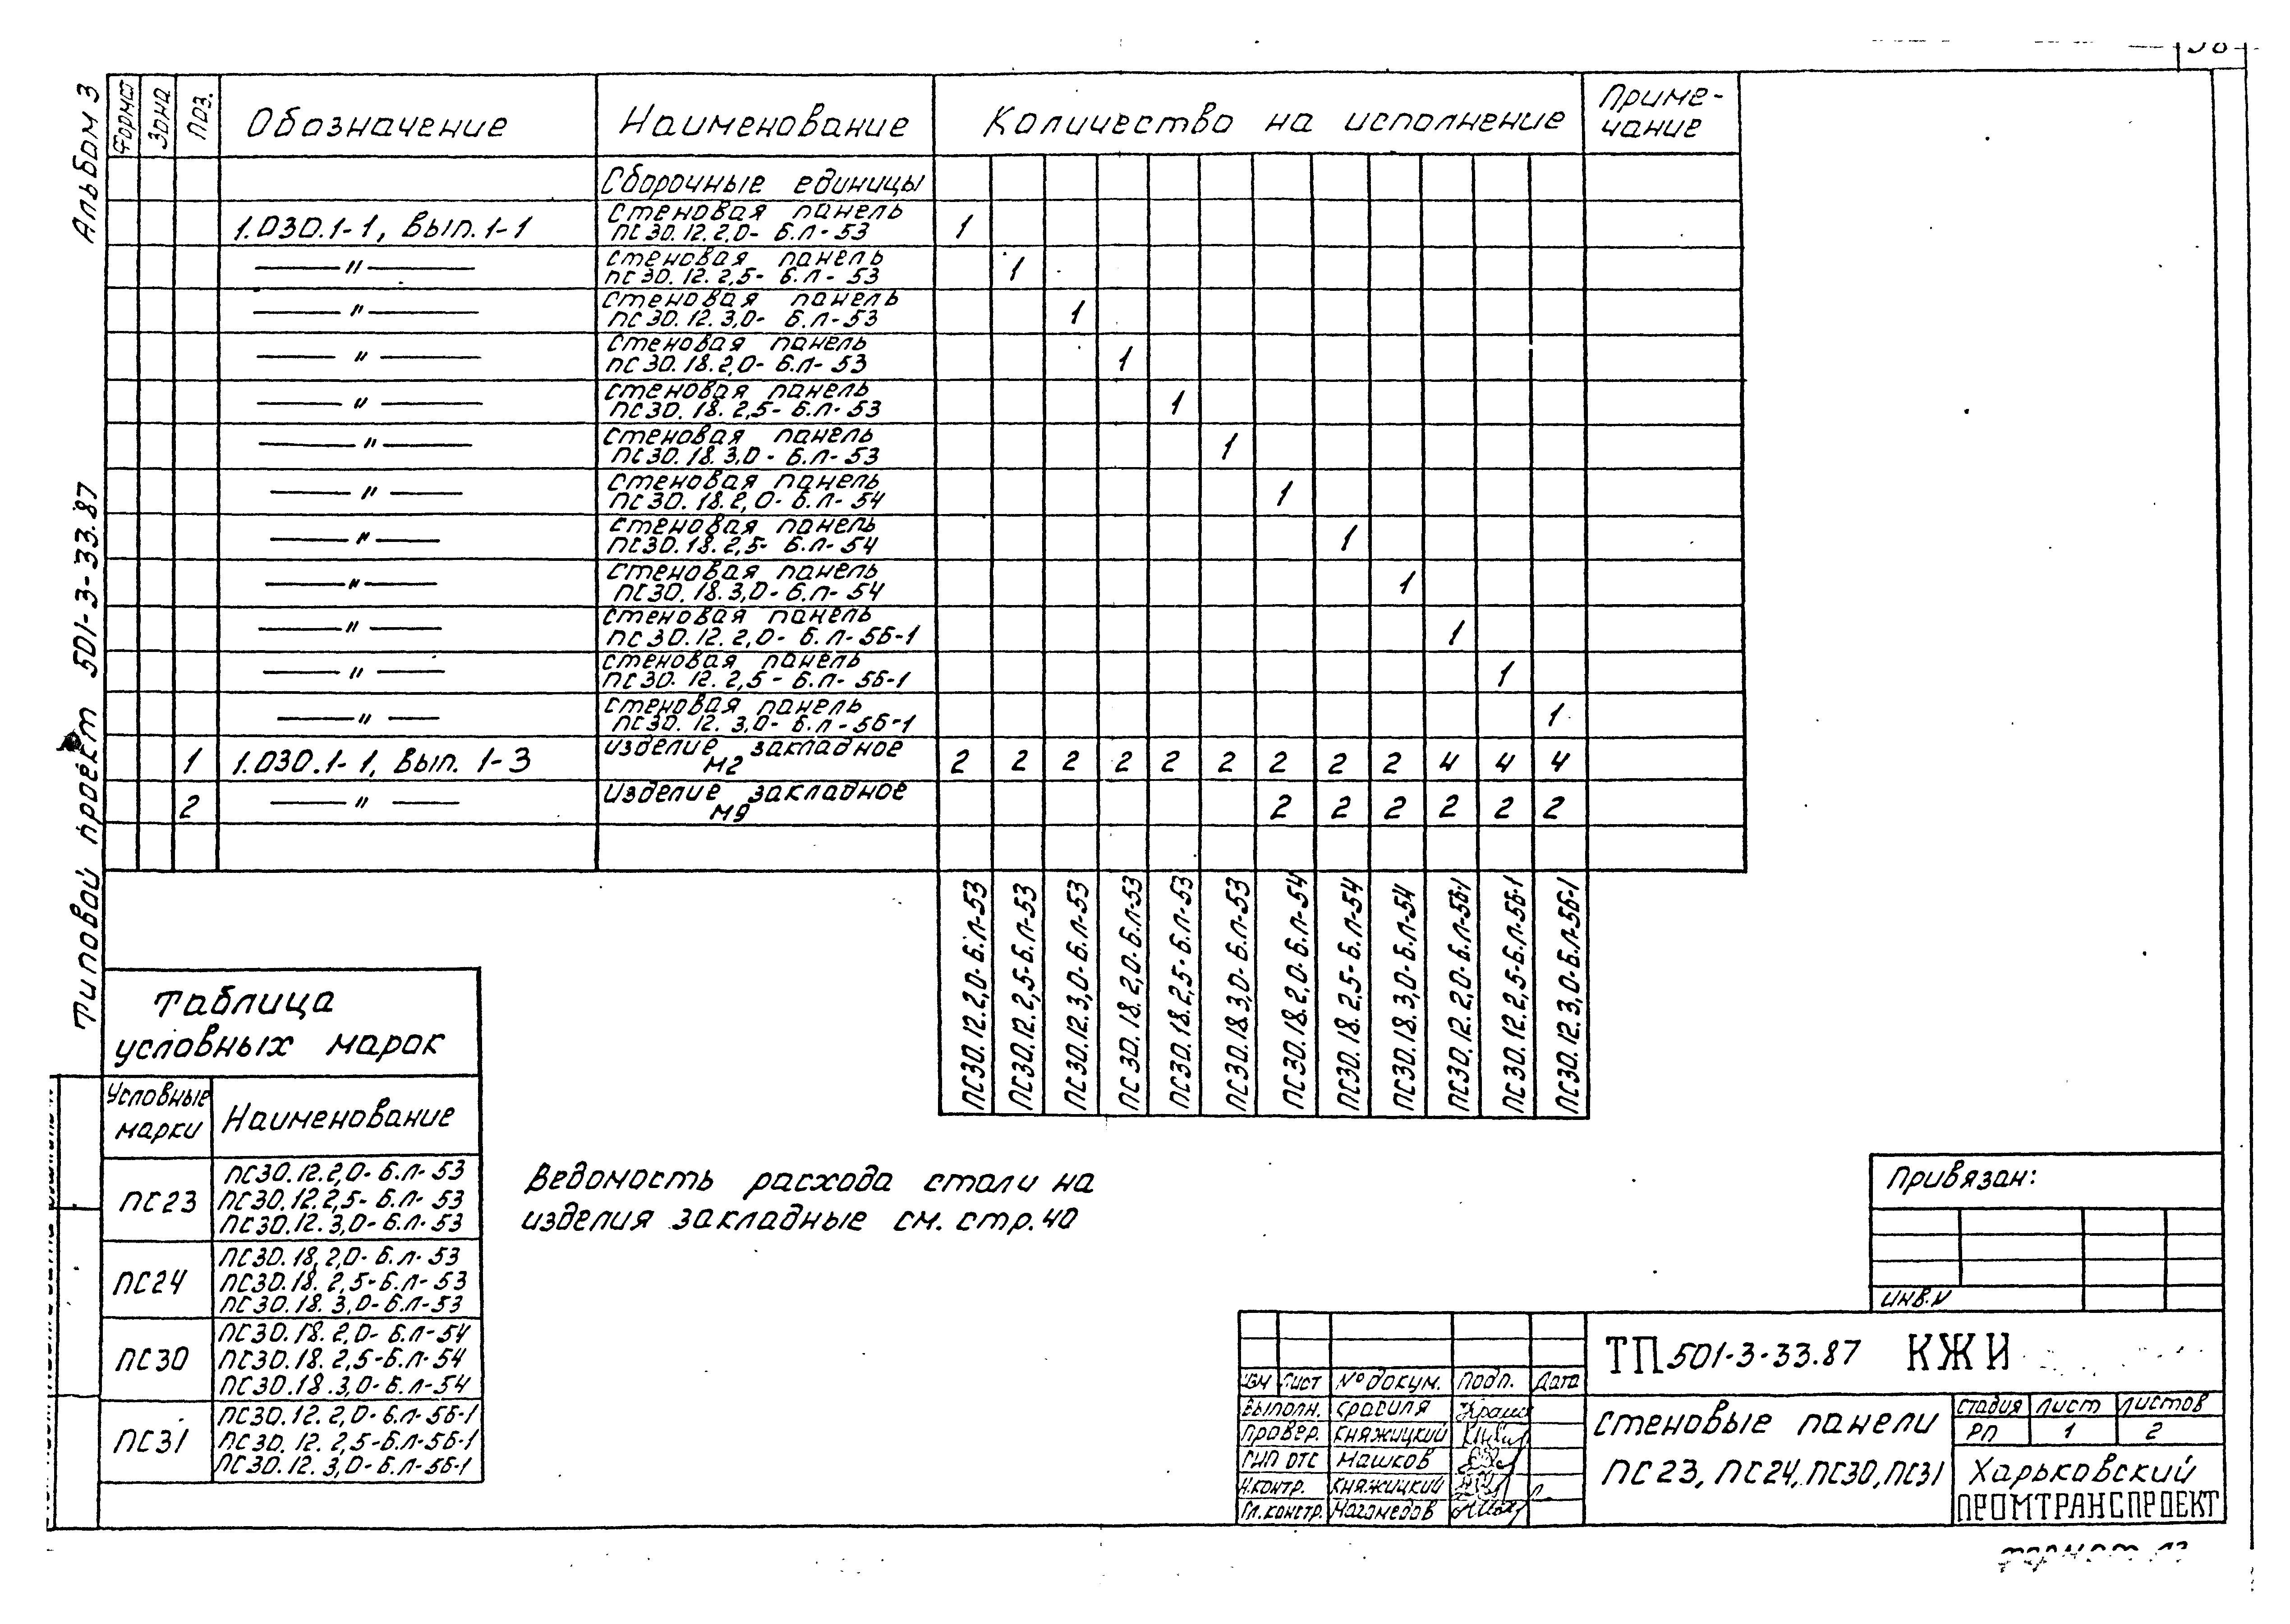 Альбом 3
Типовой проект 501-3-33.87
Формат Зона Поз. Обозначение Наименование Количество на исполнение Приме-
чание
Сборочные единицы
1.030.1-1, Вып. 1-1 Стеновая панель
ПС 30.12.2,0-Б.Л-53 1
—"— Стеновая панель
ПС 30.12.2,5-Б.Л-53 1
—"— Стеновая панель
ПС 30.12.3,0-Б.Л-53 1
—"— Стеновая панель
ПС 30.18.2,0-Б.Л-53 1
—"— Стеновая панель
ПС30.18.2,5-Б.Л-53 1
—"— Стеновая панель
ПС30.18.3,0-Б.Л-53 1
—"— Стеновая панель
ПС30.18.2,0-Б.Л-54 1
—"— Стеновая панель
ПС30.18.2,5-Б.Л-54 1
—"— Стеновая панель
ПС30.18.3,0-Б.Л-54 1
—"— Стеновая панель
ПС 30.12.2,0-Б.Л-5Б-1 1
—"— Стеновая панель
ПС30.12.2,5-Б.Л-5Б-1 1
—"— Стеновая панель
ПС30.12.3,0-Б.Л-5Б-1 1
1 1.030.1-1, Вып. 1-3 Изделие закладное
М2 2 2 2 2 2 2 2 2 2 4 4 4
2 —"— Изделие закладное
М9 2 2 2 2 2 2
ПС30.12.2,0-Б.Л-53
ПС30.12.2,5-Б.Л-53
ПС30.12.3,0-Б.Л-53
ПС30.18.2,0-Б.Л-53
ПС30.18.2,5-Б.Л-53
ПС30.18.3,0-Б.Л-53
ПС30.18.2,0-Б.Л-54
ПС30.18.2,5-Б.Л-54
ПС30.18.3,0-Б.Л-54
ПС30.12.2,0-Б.Л-5Б-1
ПС30.12.2,5-Б.Л-5Б-1
ПС30.12.3,0-Б.Л-5Б-1
Таблица
условных марок
Условные
марки Наименование
ПС23 ПС30.12.2,0-Б.Л-53
ПС30.12.2,5-Б.Л-53
ПС30.12.3,0-Б.Л-53
ПС24 ПС30.18.2,0-Б.Л-53
ПС30.18.2,5-Б.Л-53
ПС30.18.3,0-Б.Л-53
ПС30 ПС30.18.2,0-Б.Л-54
ПС30.18.2,5-Б.Л-54
ПС30.18.3,0-Б.Л-54
ПС31 ПС30.12.2,0-Б.Л-5Б-1
ПС30.12.2,5-Б.Л-5Б-1
ПС30.12.3,0-Б.Л-5Б-1
Ведомость расхода стали на
изделия закладные см. стр. 40
Привязан:
Инв.N
ТП 501-3-33.87 КЖИ
Изм Лист №докум. Подп. Дата
Выполн.
Провер. Княжицкий
ГИП ОТС Машков
Н.контр. Княжицкий
Гл.констр. Магомедов
Стеновые панели
ПС23, ПС24, ПС30, ПС31
Стадия Лист Листов
РП 1 2
Харьковский
ПРОМТРАНСПРОЕКТ